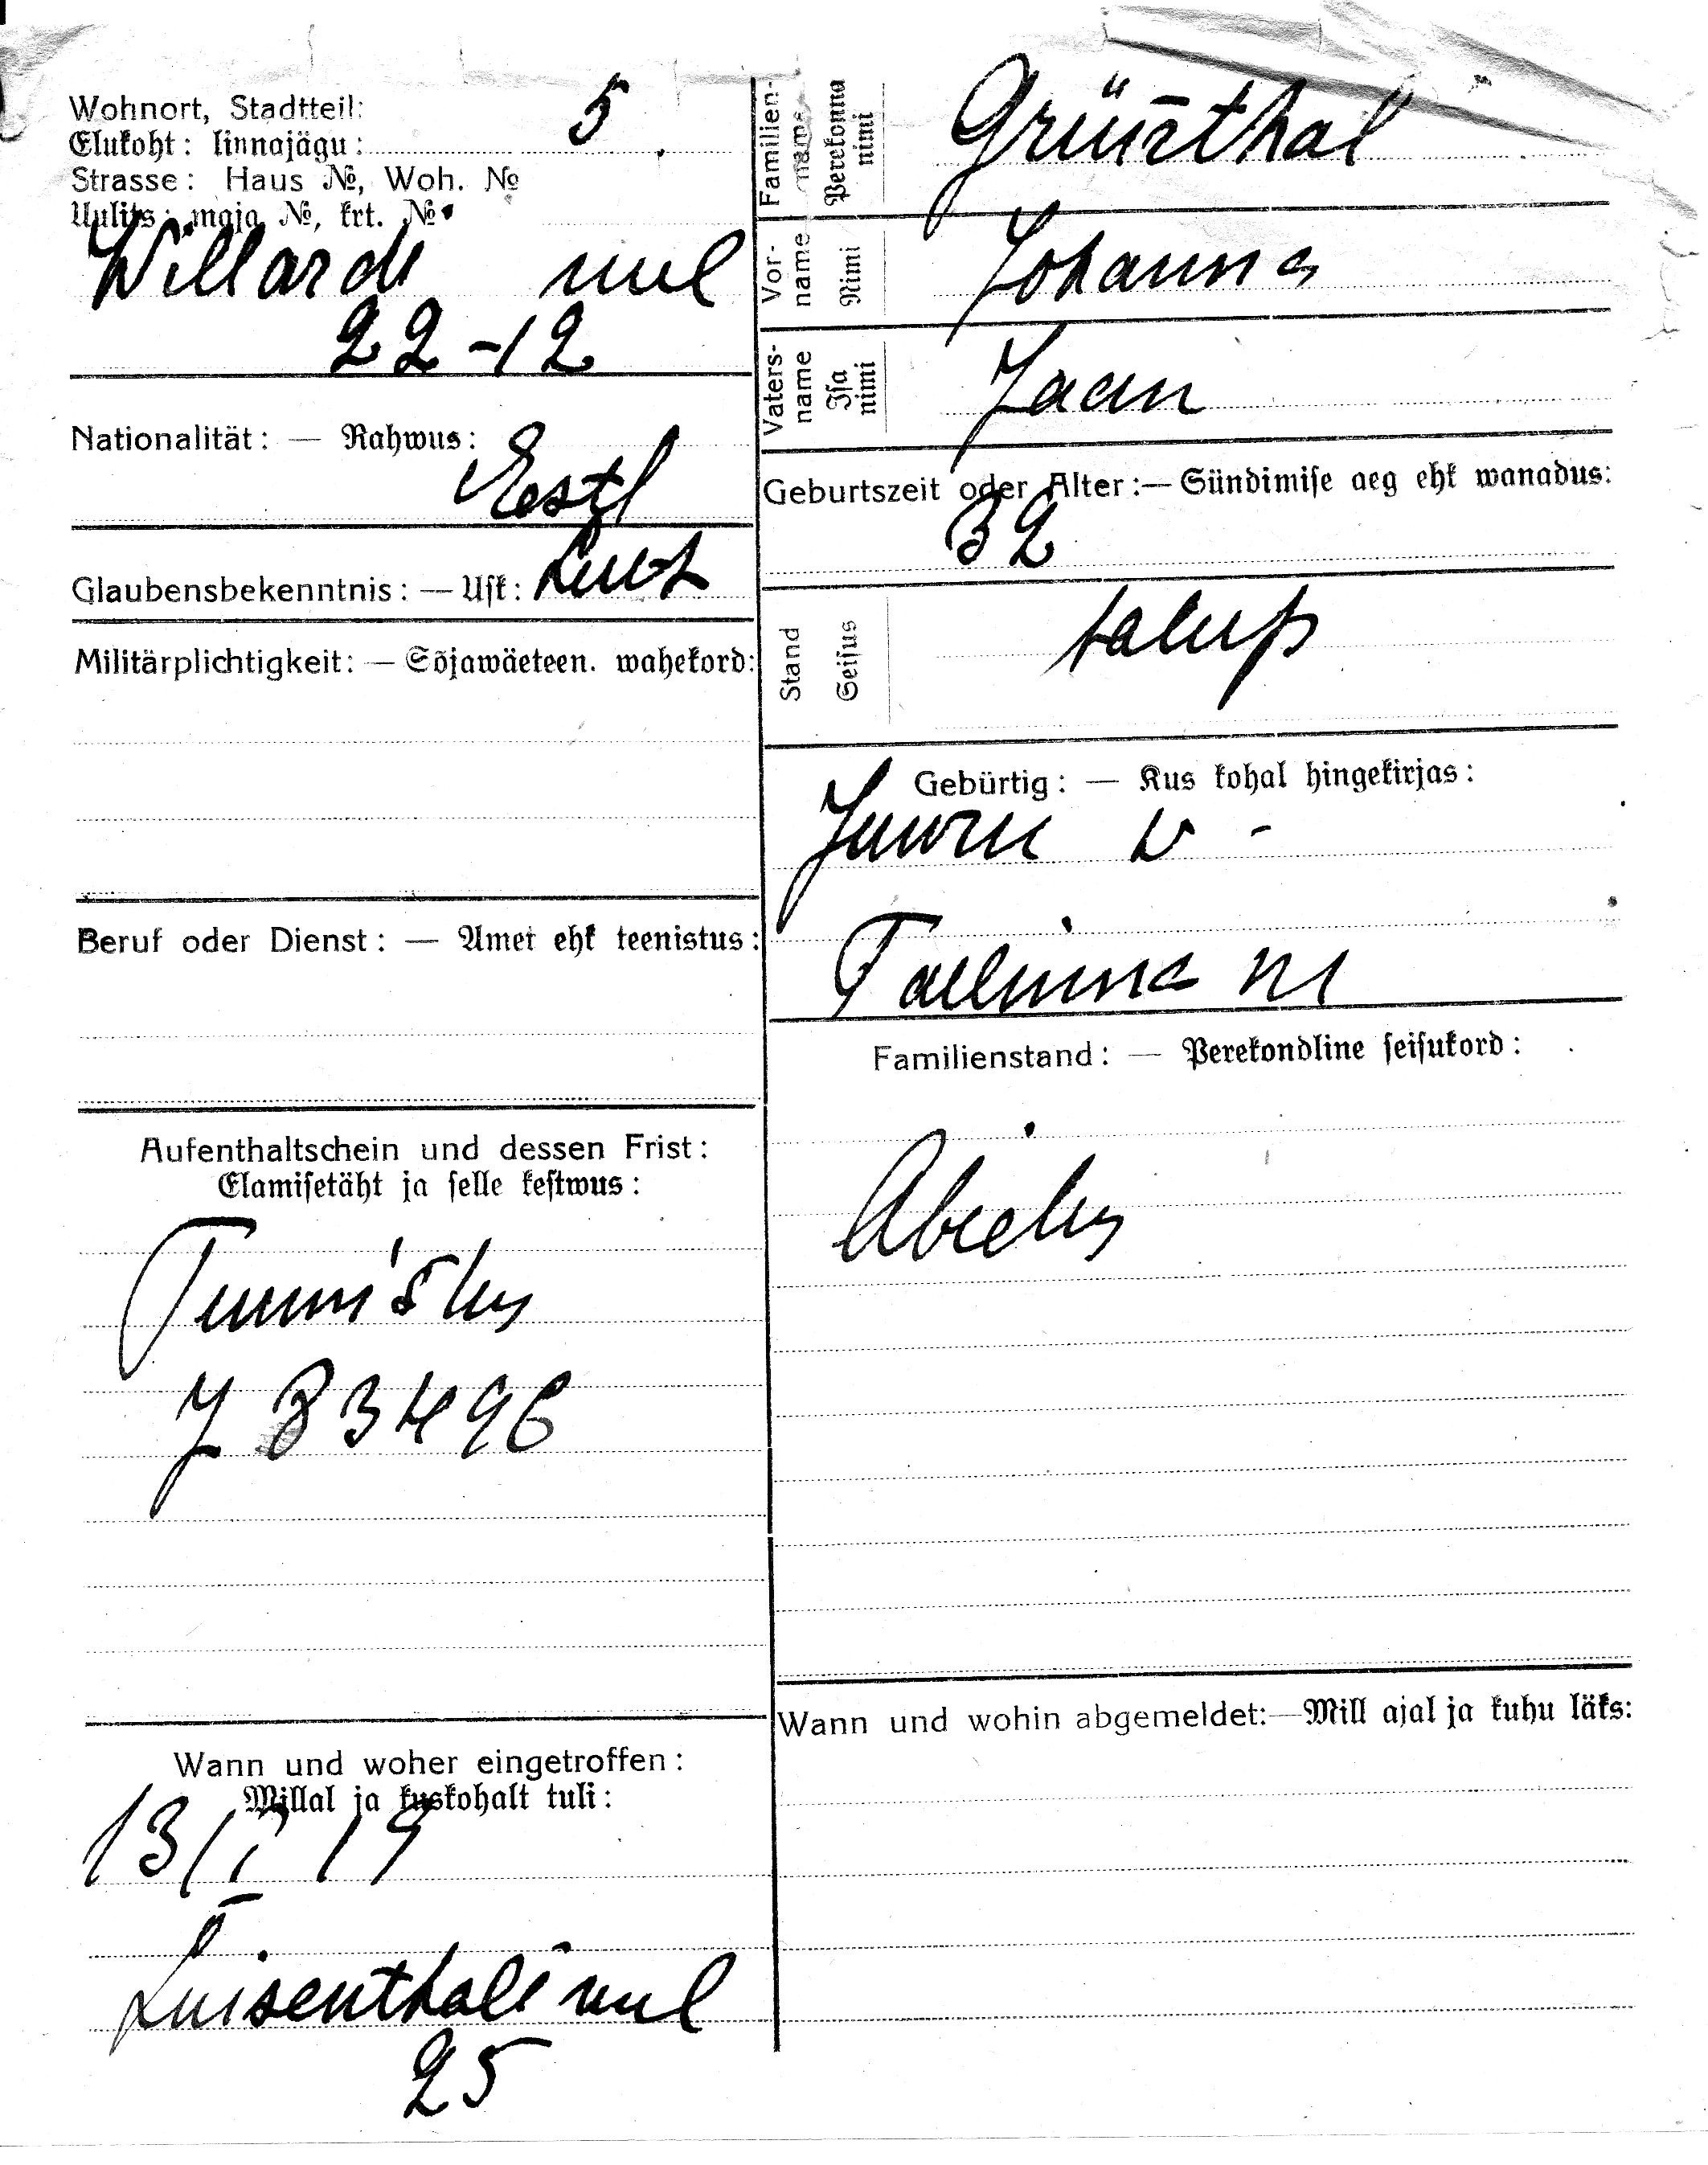 Wohnort, Stadtteil:
Elukoht: linnajägu: 5
Strasse: Haus №, Woh. №
Uulits: maja №, krt. №
Willardi uul
22-12
Nationalität: — Rahwus:
Eestl
Glaubensbekenntnis: — Usk: Lut
Militärplichtigkeit: — Sõjawäeteen. wahekord:
Beruf oder Dienst: — Amet ehk teenistus:
Aufenthaltschein und dessen Frist:
Elamisetäht ja selle kestwus:
Tunnistus
J 83496
Wann und woher eingetroffen:
Millal ja kuskohalt tuli:
13/I 19
Luisenthali uul
25
Familien-name Perekonna nimi Grünthal
Vor-name Nimi Johannes
Vaters-name Isa nimi Jaan
Geburtszeit oder Alter:— Sündimise aeg ehk wanadus:
32
Stand Seisus talup
Gebürtig: — Kus kohal hingekirjas:
Juuru w -
Tallinna m
Familienstand: — Perekondline seisukord:
Abielus
Wann und wohin abgemeldet:—Mill ajal ja kuhu läks: